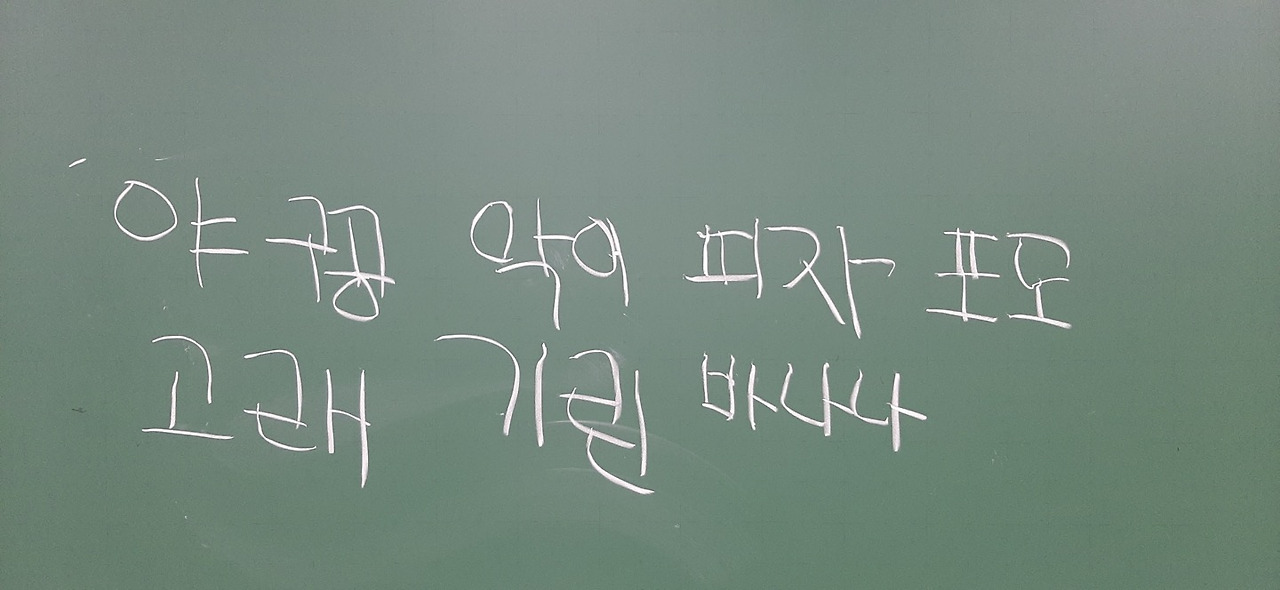 악어 피자 포도
고래 기린 바나나